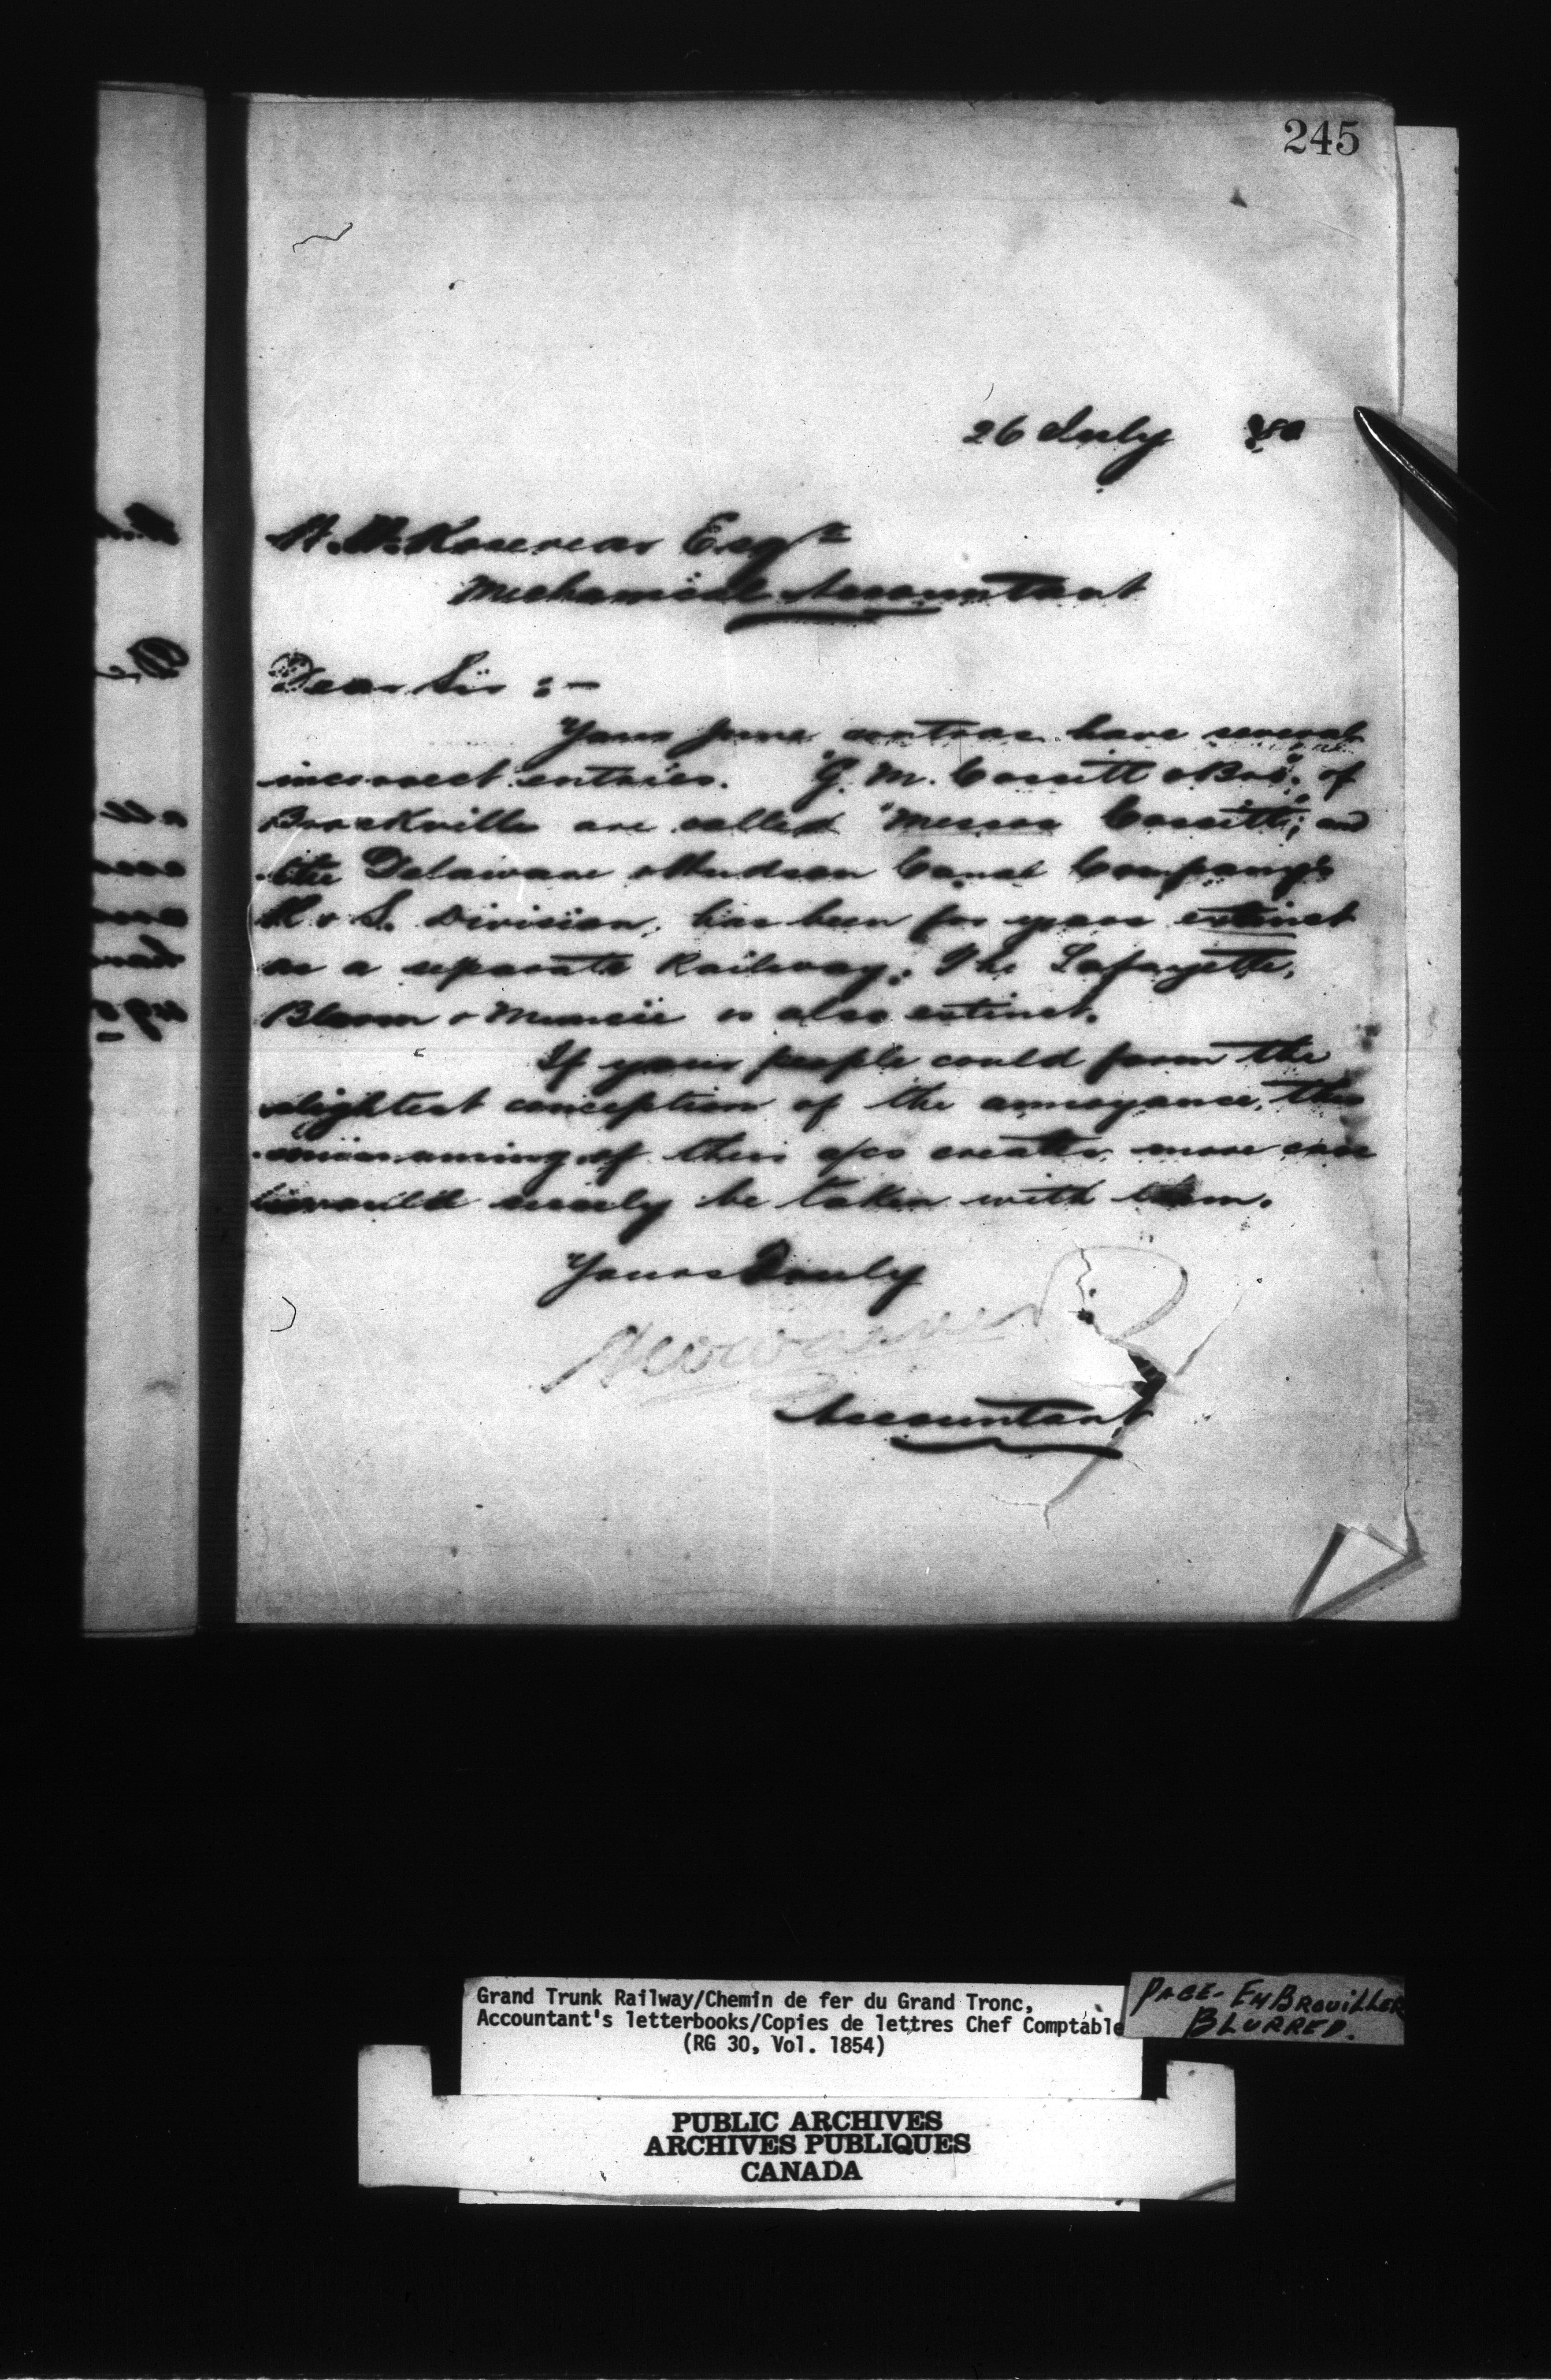 245
26 July 80
Esqre
Mechanical Accountant
Dear Sir :-
Your June contras have several
incorrect entries. "G. M. Cossitt & Bro", of
Brockville are called "Messrs Cossitt", and
the Delaware & Hudson Canal Company's
R & S. Division, has been for years extinct
as a separate Railway. The Lafayette,
Bloom & Muncie is also extinct.
If your people could form the
slightest conception of the annoyance, this
misnaming of their a/cs creates more care
would surely be taken with them.
Yours Truly
Accountant
Grand Trunk Railway/Chemin de fer du Grand Tronc,
Accountant's letterbooks/Copies de lettres Chef Comptable
(RG 30, Vol. 1854)
PAGE - EMBROUILLER
BLURRED.
PUBLIC ARCHIVES
ARCHIVES PUBLIQUES
CANADA